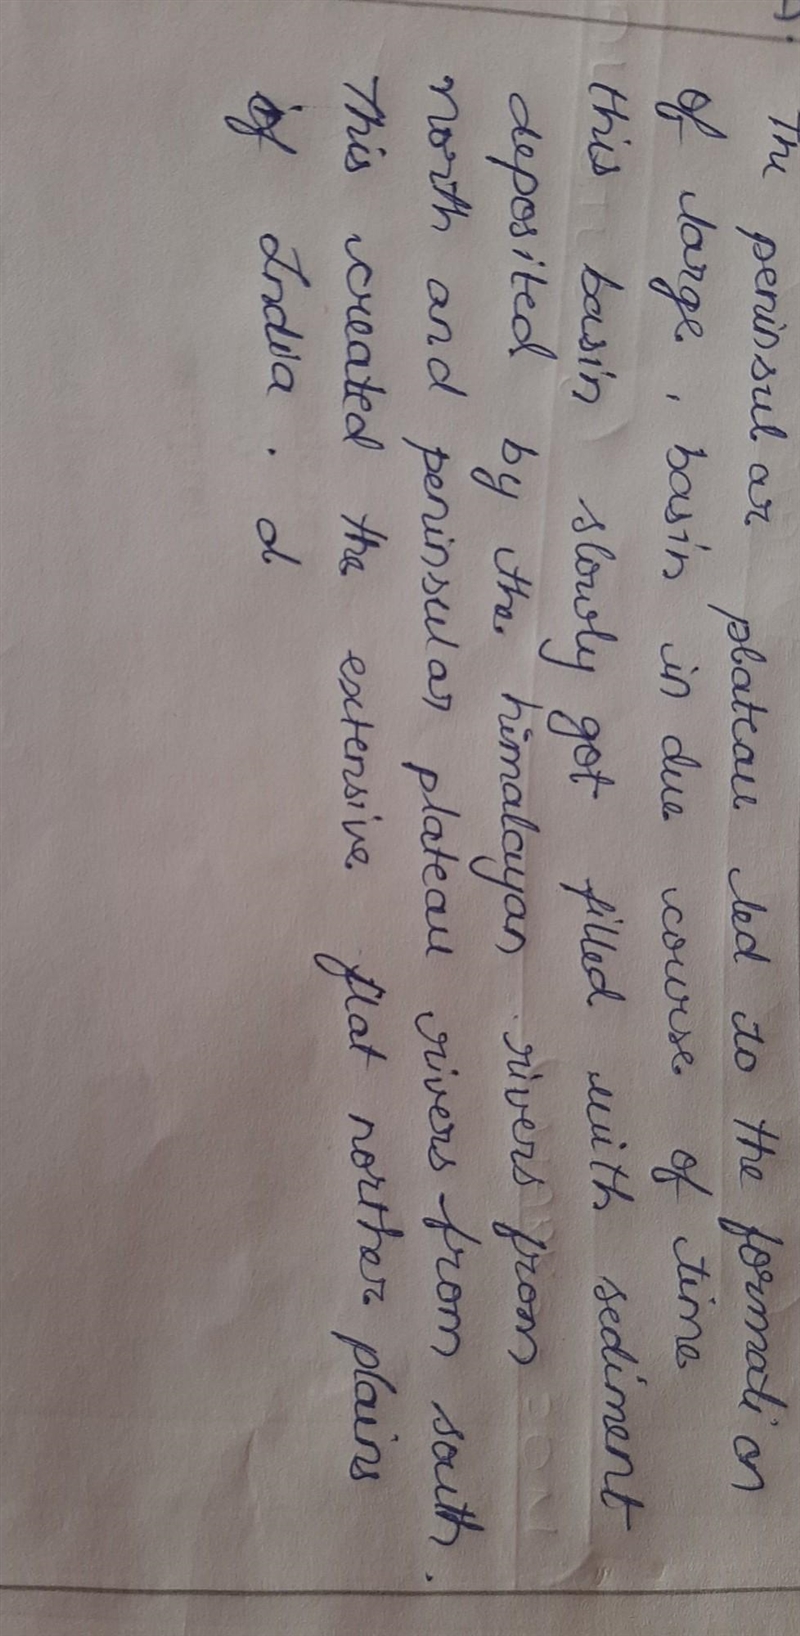 The peninsular plateau led to the formation
of large, basin in due course of time
this basin slowly got filled with sediment
deposited by the himalayan rivers from
north and peninsular plateau rivers from south.
This created the extensive flat norther plains
of India. d